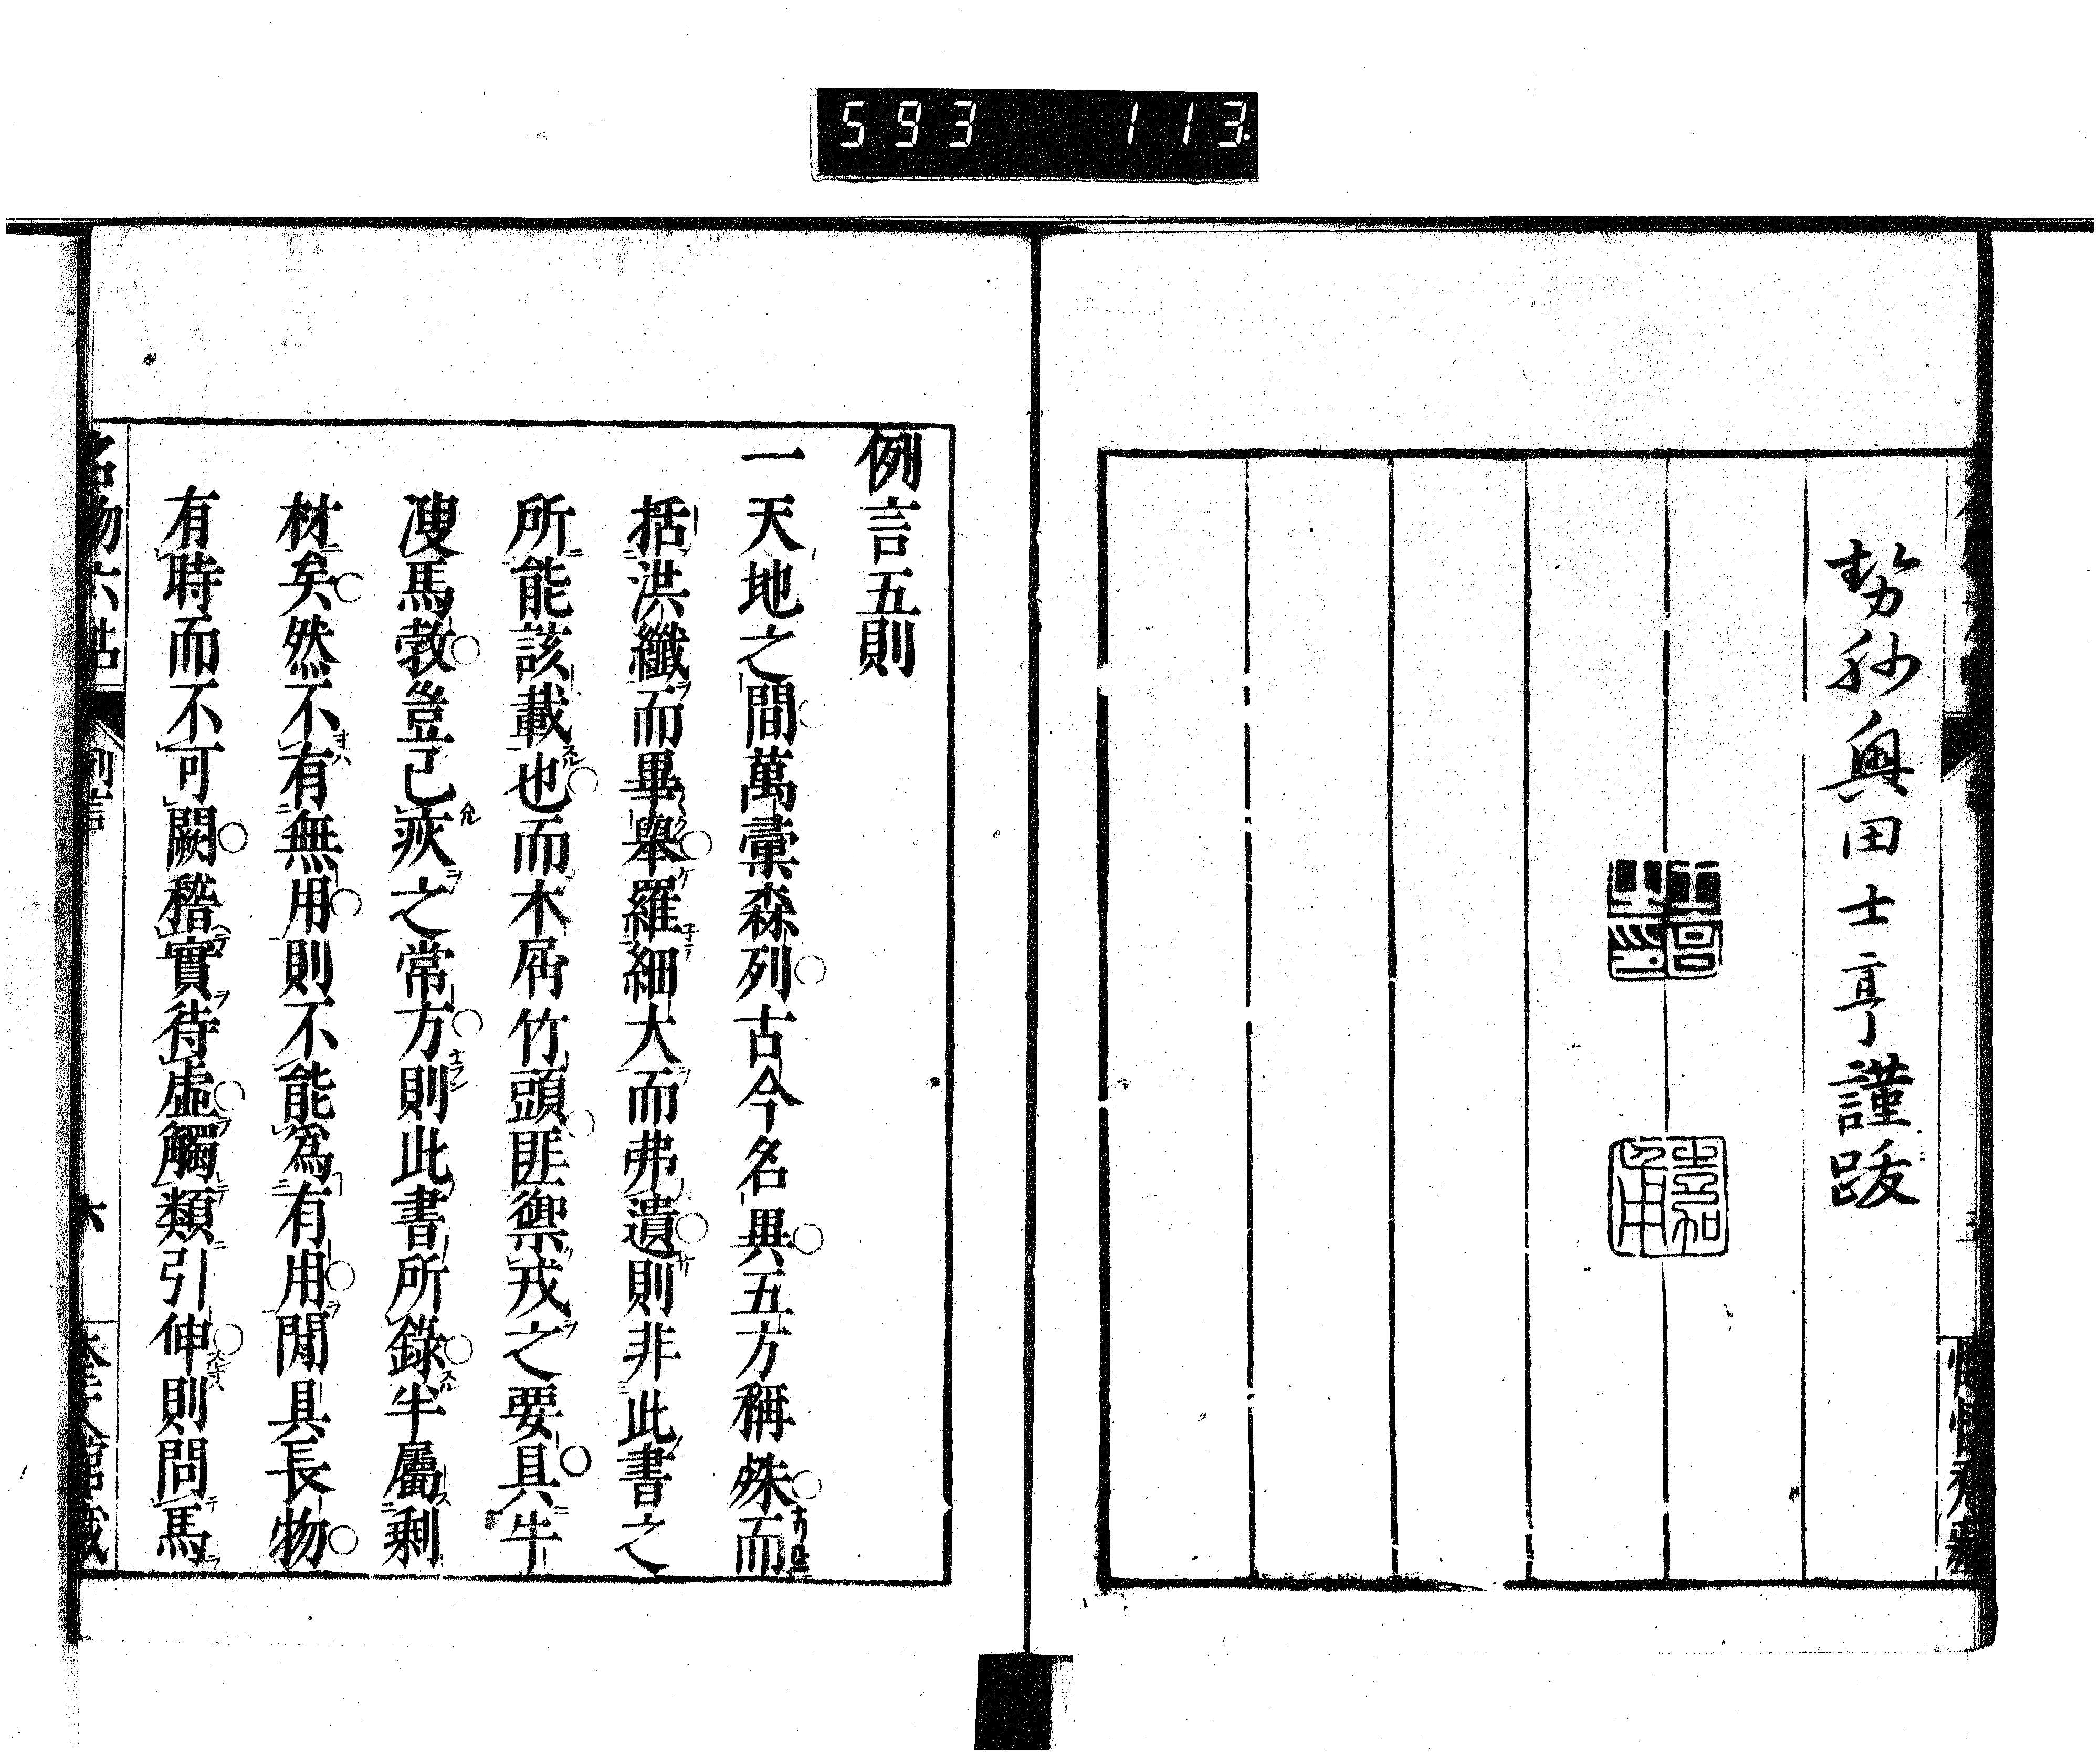 593 113
勢州奧田士亨謹跋
例言五則
一天地之間萬彙森列古今名異五方稱殊而
括洪纖而畢舉羅細大而弗遺則非此書之
所能該載也而木屑竹頭匪禦戎之要具牛
溲馬勃豈已疢之常方則此書所錄半屬剩
材矣然不有無用則不能為有用閒具長物
有時而不可闕稽實待虛觸類引伸則問馬
名物六帖
例言
六